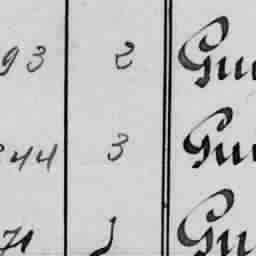 93 2 Gu
44 3 Gu
71 Gu